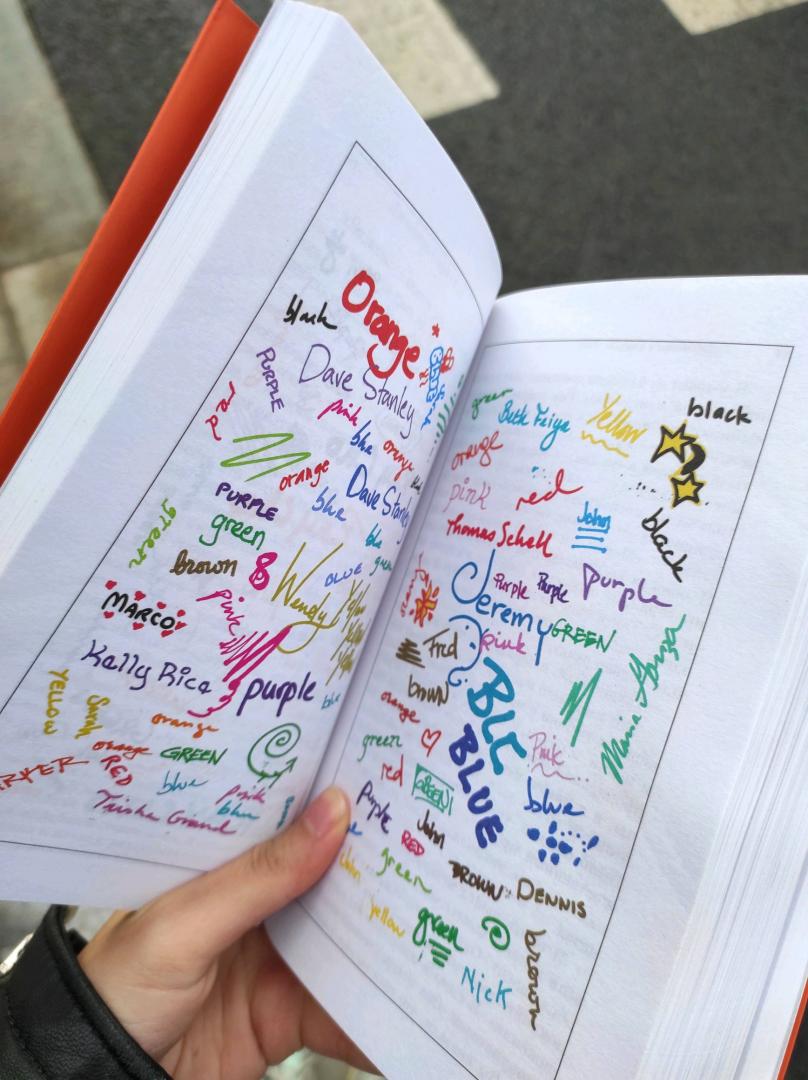 Orange
black
Dave Stanley
PURPLE
pink
red
blue
orange
orange
Dave Stanley
PURPLE
blue
green
green
blue
green
brown
BLUE
Wendy
Yellow
Yellow
Yellow
MARCO
pink
Kelly Rice
purple
blue
YELLOW
Sarah
orange
orange
GREEN
RED
blue
pink
blue
Trisha Grand
green
Yellow
black
orange
pink
red
Thomas Schell
John
black
Purple
Purple
Purple
Jeremy
GREEN
Fred
pink
Maria
brown
BLUE
orange
Pink
green
red
GREEN
blue
Purple
John
RED
BROWN
DENNIS
John
green
yellow
green
brown
Nick